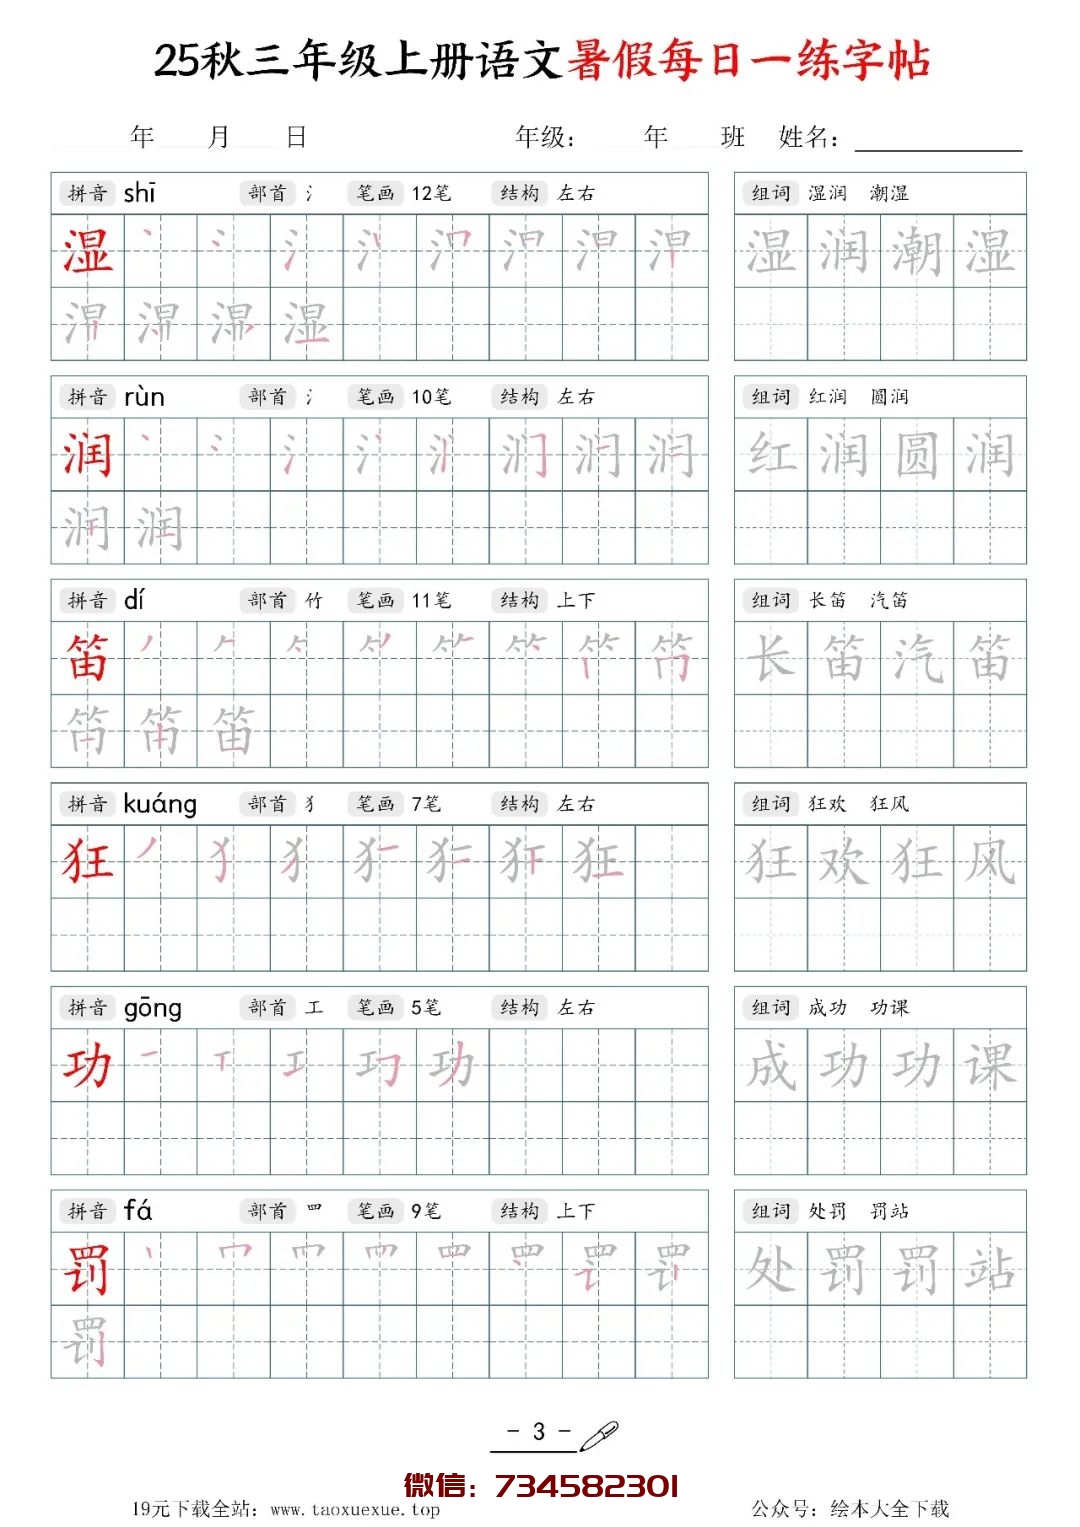 25秋三年级上册语文暑假每日一练字帖
年 月 日 年级： 年 班 姓名：
拼音 shī 部首 氵 笔画 12笔 结构 左右 组词 湿润 潮湿
湿 湿润潮湿
湿
拼音 rùn 部首 氵 笔画 10笔 结构 左右 组词 红润 圆润
润 红润圆润
润
拼音 dí 部首 竹 笔画 11笔 结构 上下 组词 长笛 汽笛
笛 长笛汽笛
笛
拼音 kuáng 部首 犭 笔画 7笔 结构 左右 组词 狂欢 狂风
狂 狂 狂欢狂风
拼音 gōng 部首 工 笔画 5笔 结构 左右 组词 成功 功课
功 功 成功功课
拼音 fá 部首 罒 笔画 9笔 结构 上下 组词 处罚 罚站
罚 处罚罚站
罚
- 3 -
微信：734582301
19元下载全站：www.taoxuexue.top 公众号：绘本大全下载